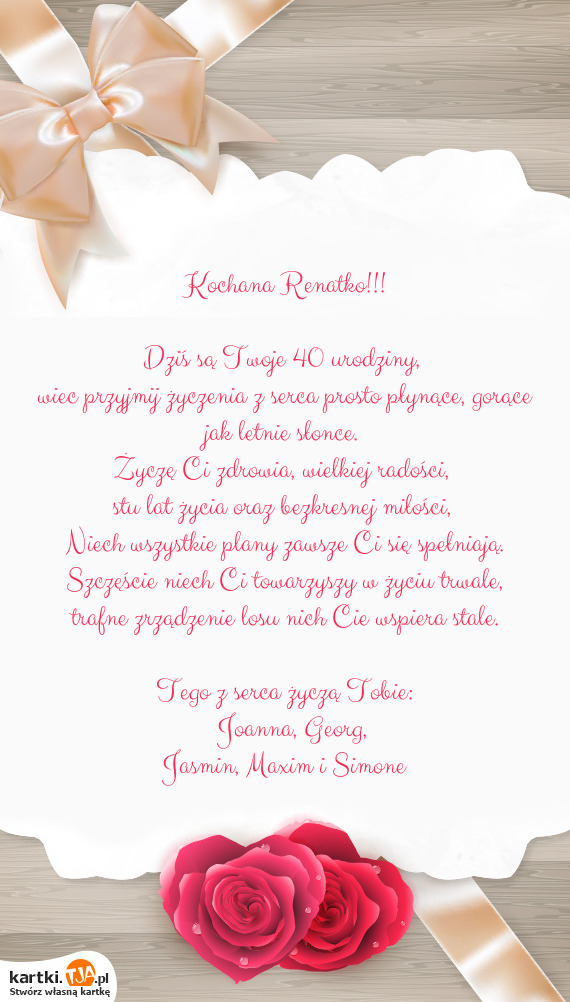 Kochana Renatko!!!
Dziś są Twoje 40 urodziny,
wiec przyjmij życzenia z serca prosto płynące, gorące
jak letnie słonce.
Życzę Ci zdrowia, wielkiej radości,
stu lat życia oraz bezkresnej miłości,
Niech wszystkie plany zawsze Ci się spełniają.
Szczęście niech Ci towarzyszy w życiu trwale,
trafne zrządzenie losu nich Cie wspiera stale.
Tego z serca życzą Tobie:
Joanna, Georg,
Jasmin, Maxim i Simone
kartki.TJA.pl
Stwórz własną kartkę